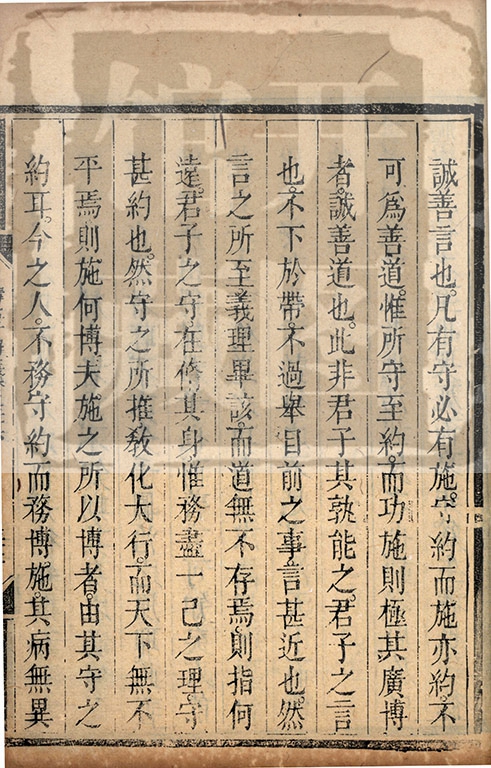 誠善言也。凡有守必有施。守約而施亦約。不
可爲善道。惟所守至約。而功施則極其廣博
者。誠善道也。此非君子其孰能之。君子之言
也。不下於帶。不過舉目前之事。言甚近也。然
言之所至。義理畢該。而道無不存焉。則指何
遠。君子之守。在脩其身。惟務盡一己之理。守
甚約也。然守之所推。敎化大行。而天下無不
平焉。則施何博。夫施之所以博者。由其守之
約耳。今之人。不務守約而務博施。其病無異